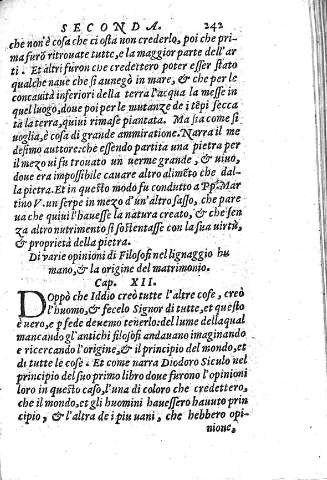 SECONDA. 242
che non'è cosa che ci osta non crederlo, poi che pri-
ma furõ ritrouate tutte, e la maggior parte dell'ar
ti. Et altri furon che credettero poter esser stato
qualche naue che si anegò in mare, & che per le
concauità inferiori della terra l'acqua la messe in
quel luogo, doue poi per le mutanze de i tẽpi secca
ta la terra, quiui rimase piantata. Ma sia come si
uoglia, è cosa di grande ammiratione. Narra il me
desimo auttore: che essendo partita una pietra per
il mezo ui fu trouato un uerme grande, & uiuo,
doue era impossibile cauare altro alimẽto che dal-
la pietra. Et in questo modo fu condutto a Pp. Mar
tino V. un serpe in mezo d'un'altro sasso, che pare
ua che quiui l'hauesse la natura creato, & che sen
za altro nutrimento si sostentasse con la sua uirtù,
& proprietà della pietra.
Di varie opinioni di Filosofi nel lignaggio hu
mano, & la origine del matrimonio.
Cap. XII.
DOppò che Iddio creò tutte l'altre cose, creò
l'huomo, & fecelo Signor di tutte, et questo
è uero, e p fede deuemo tenerlo: del lume della qual
mancando gl'antichi filosofi andauano imaginando
e ricercando l'origine, & il principio del mondo, et
di tutte le cose. Et come narra Diodoro Siculo nel
principio del suo primo libro doue furono l'opinioni
loro in questo caso, l'una di coloro che credettero,
che il mondo, et gli huomini hauessero hauuto prin
cipio, & l'altra de i piu uani, che hebbero opi-
nione,